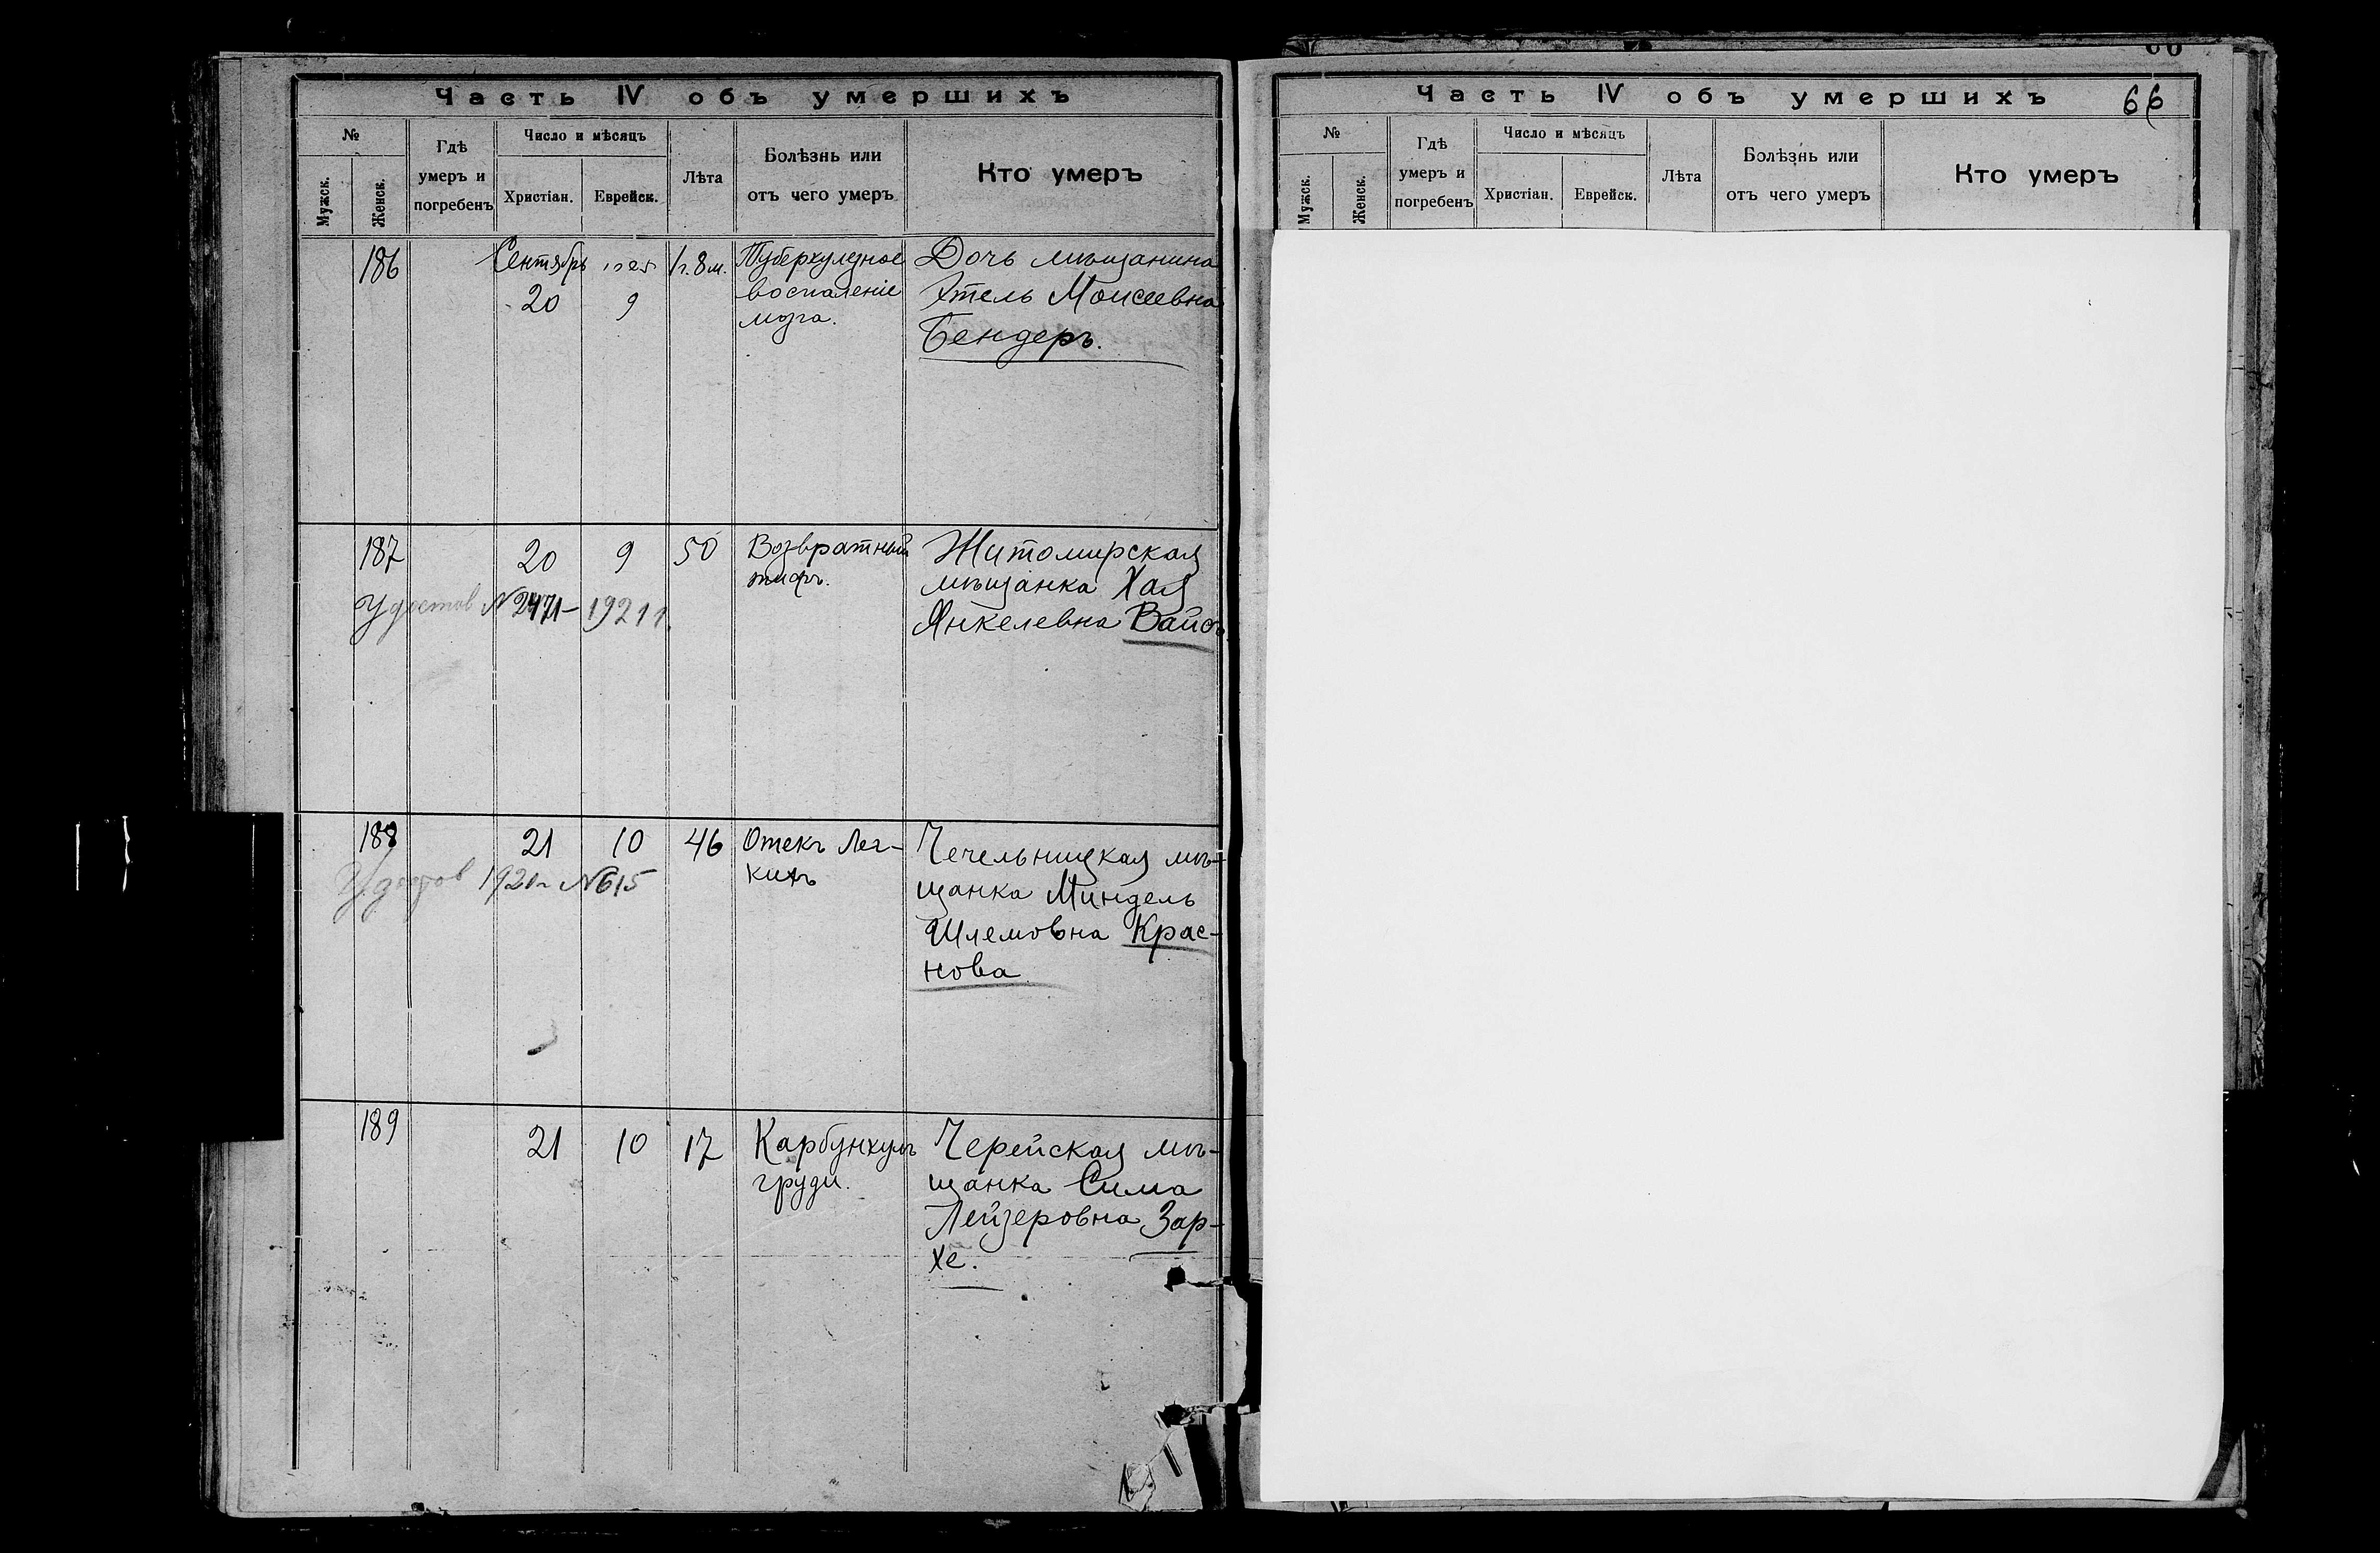 Часть IV объ умершихъ
№
Мужск.
Женск.
Гдѣ
умеръ и
погребенъ
Число и мѣсяцъ
Христіан.
Еврейск.
Лѣта
Болѣзнь или
отъ чего умеръ
Кто умеръ
186
Сентябрь
20
9
1 г. 8 м.
Туберкулезное
воспаленіе
мозга.
Дочь мѣщанина
Этель Моисеевна
Бендеръ.
187
20
9
50
Возвратный
тифъ.
Житомирская
мѣщанка Хая
Янкелевна Вайсъ
Удостов № 2471 - 1921 г.
188
21
10
46
Отекъ Лег-
кихъ
Чечельницкая мѣ-
щанка Миндель
Шлемовна Крас-
нова
Удостов 1921 г № 615
189
21
10
17
Карбункулъ
груди.
Черейская мѣ-
щанка Сима
Лейзеровна Зар-
хе.
Часть IV объ умершихъ
66
№
Мужск.
Женск.
Гдѣ
умеръ и
погребенъ
Число и мѣсяцъ
Христіан.
Еврейск.
Лѣта
Болѣзнь или
отъ чего умеръ
Кто умеръ